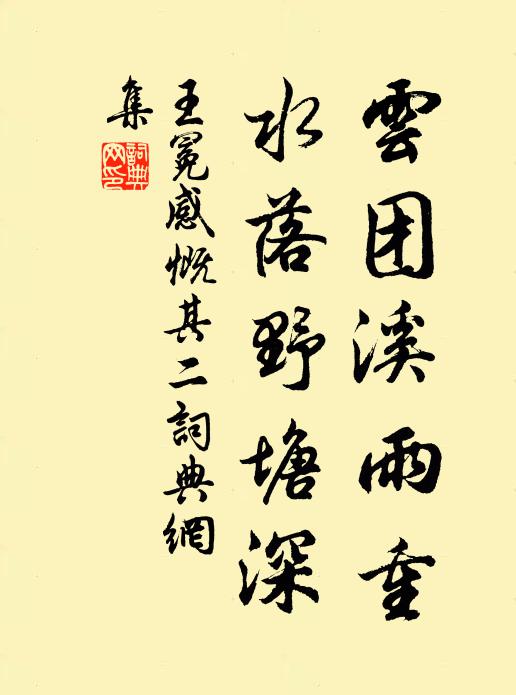 雲团溪雨重
水落野塘深
王冕感慨其二詞典網
集
詞典網印